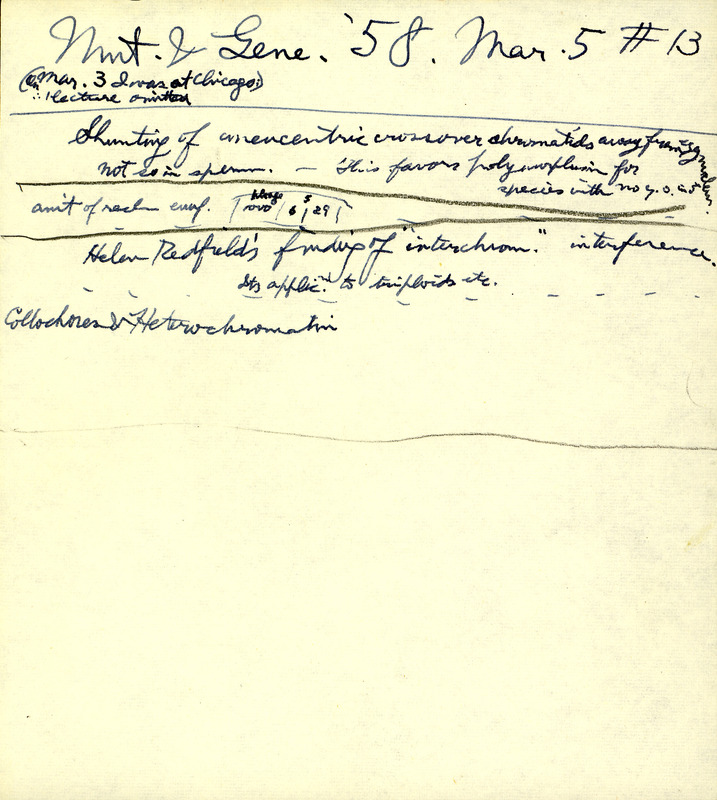 Mut. & Gene. '58. Mar. 5 #13
(On Mar. 3 I was at Chicago;)
lecture omitted
Shunting of aneucentric crossover chromatids away from egg nucleus.
not so in sperm. — This favors polymorphism for
species with no c.o. in ♂
amt of recbn
6 5 29
Helen Redfield's finding of "interchrom." interference.
Its applic.n to triploids etc.
Collochores & Heterochromatin